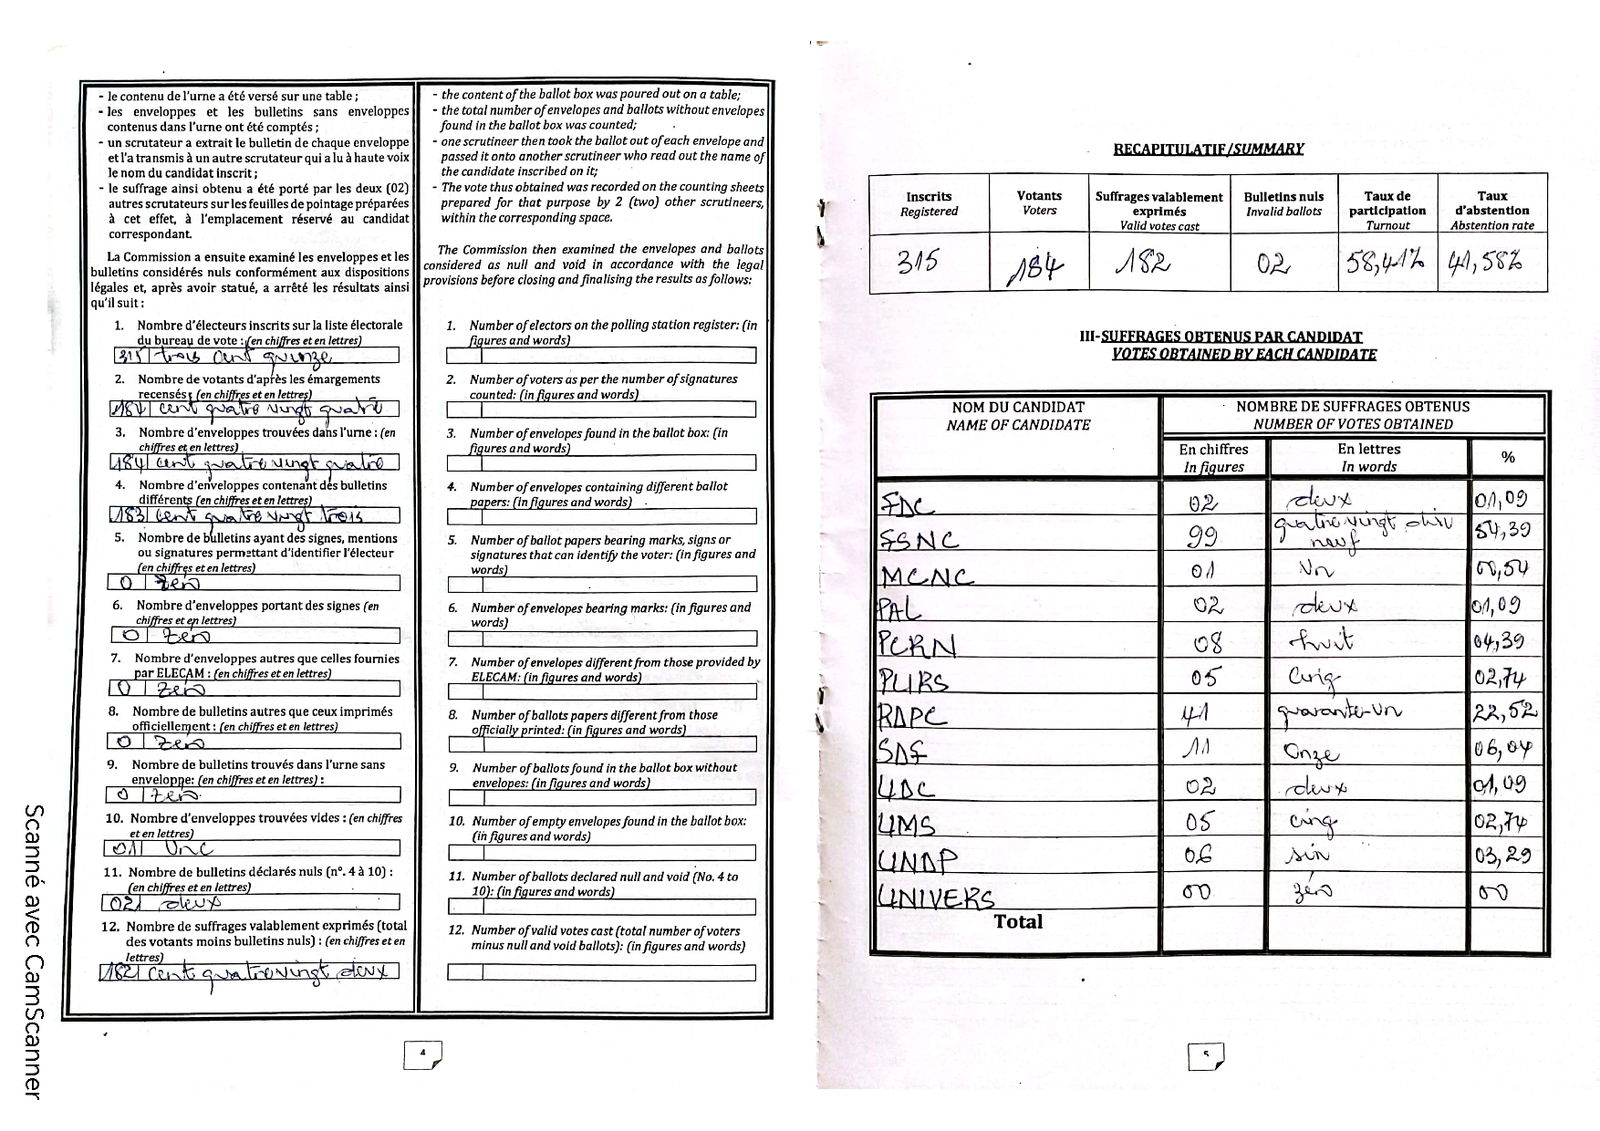 - le contenu de l'urne a été versé sur une table ;
- les enveloppes et les bulletins sans enveloppes
contenus dans l'urne ont été comptés ;
- un scrutateur a extrait le bulletin de chaque enveloppe
et l'a transmis à un autre scrutateur qui a lu à haute voix
le nom du candidat inscrit ;
- le suffrage ainsi obtenu a été porté par les deux (02)
autres scrutateurs sur les feuilles de pointage préparées
à cet effet, à l'emplacement réservé au candidat
correspondant.
La Commission a ensuite examiné les enveloppes et les
bulletins considérés nuls conformément aux dispositions
légales et, après avoir statué, a arrêté les résultats ainsi
qu'il suit :
1. Nombre d'électeurs inscrits sur la liste électorale
du bureau de vote : (en chiffres et en lettres)
315 trois cent quinze
2. Nombre de votants d'après les émargements
recensés (en chiffres et en lettres)
184 cent quatre vingt quatre
3. Nombre d'enveloppes trouvées dans l'urne : (en
chiffres et en lettres)
184 cent quatre vingt quatre
4. Nombre d'enveloppes contenant des bulletins
différents (en chiffres et en lettres)
183 cent quatre vingt trois
5. Nombre de bulletins ayant des signes, mentions
ou signatures permettant d'identifier l'électeur
(en chiffres et en lettres)
0 zéro
6. Nombre d'enveloppes portant des signes (en
chiffres et en lettres)
0 zéro
7. Nombre d'enveloppes autres que celles fournies
par ELECAM : (en chiffres et en lettres)
0 zéro
8. Nombre de bulletins autres que ceux imprimés
officiellement : (en chiffres et en lettres)
0 zéro
9. Nombre de bulletins trouvés dans l'urne sans
enveloppe: (en chiffres et en lettres) :
0 zéro
10. Nombre d'enveloppes trouvées vides : (en chiffres
et en lettres)
01 une
11. Nombre de bulletins déclarés nuls (n°. 4 à 10) :
(en chiffres et en lettres)
02 deux
12. Nombre de suffrages valablement exprimés (total
des votants moins bulletins nuls) : (en chiffres et en
lettres)
182 cent quatre vingt deux
- the content of the ballot box was poured out on a table;
- the total number of envelopes and ballots without envelopes
found in the ballot box was counted;
- one scrutineer then took the ballot out of each envelope and
passed it onto another scrutineer who read out the name of
the candidate inscribed on it;
- The vote thus obtained was recorded on the counting sheets
prepared for that purpose by 2 (two) other scrutineers,
within the corresponding space.
The Commission then examined the envelopes and ballots
considered as null and void in accordance with the legal
provisions before closing and finalising the results as follows:
1. Number of electors on the polling station register: (in
figures and words)
2. Number of voters as per the number of signatures
counted: (in figures and words)
3. Number of envelopes found in the ballot box: (in
figures and words)
4. Number of envelopes containing different ballot
papers: (in figures and words)
5. Number of ballot papers bearing marks, signs or
signatures that can identify the voter: (in figures and
words)
6. Number of envelopes bearing marks: (in figures and
words)
7. Number of envelopes different from those provided by
ELECAM: (in figures and words)
8. Number of ballots papers different from those
officially printed: (in figures and words)
9. Number of ballots found in the ballot box without
envelopes: (in figures and words)
10. Number of empty envelopes found in the ballot box:
(in figures and words)
11. Number of ballots declared null and void (No. 4 to
10): (in figures and words)
12. Number of valid votes cast (total number of voters
minus null and void ballots): (in figures and words)
4
Scanné avec CamScanner
RECAPITULATIF/SUMMARY
Inscrits Registered Votants Voters Suffrages valablement exprimés Valid votes cast Bulletins nuls Invalid ballots Taux de participation Turnout Taux d'abstention Abstention rate
315 184 182 02 58,41% 41,58%
III-SUFFRAGES OBTENUS PAR CANDIDAT
VOTES OBTAINED BY EACH CANDIDATE
NOM DU CANDIDAT NOMBRE DE SUFFRAGES OBTENUS
NAME OF CANDIDATE NUMBER OF VOTES OBTAINED
En chiffres En lettres %
In figures In words
FDC 02 deux 01,09
FSNC 99 quatre vingt dix neuf 54,39
MCNC 01 Un 00,54
PAL 02 deux 01,09
PCRN 08 huit 04,39
PURS 05 Cinq 02,74
RDPC 41 quarante-un 22,52
SDF 11 Onze 06,04
UDC 02 deux 01,09
UMS 05 cinq 02,74
UNDP 06 six 03,29
UNIVERS 00 zéro 00
Total
5